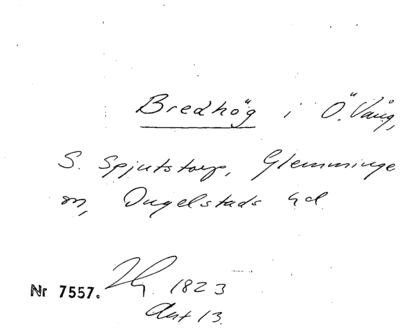 Bredhög i Ö. Vång,
S. Spjutstorp, Glemminge
sn, Ingelstads hd.
Nr 7557. 1823
Akt 13.